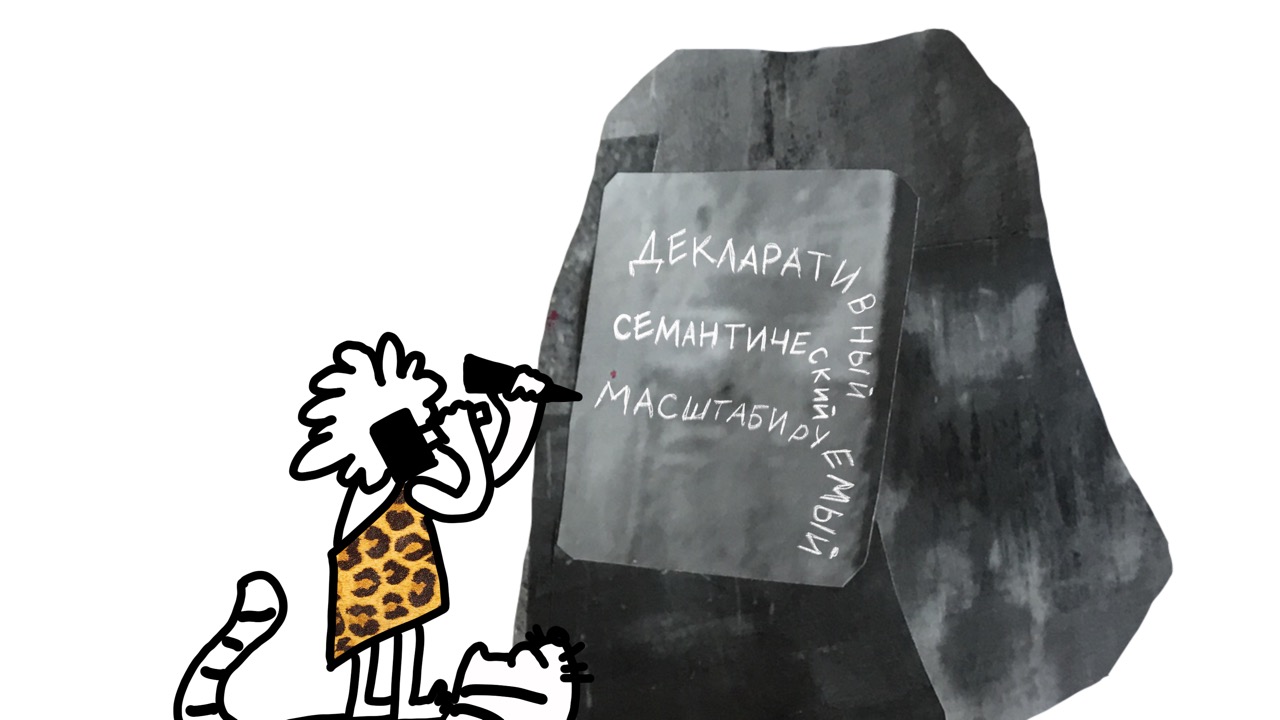 ДЕКЛАРАТИВНЫЙ
СЕМАНТИЧЕСКИЙ
МАСШТАБИРУЕМЫЙ